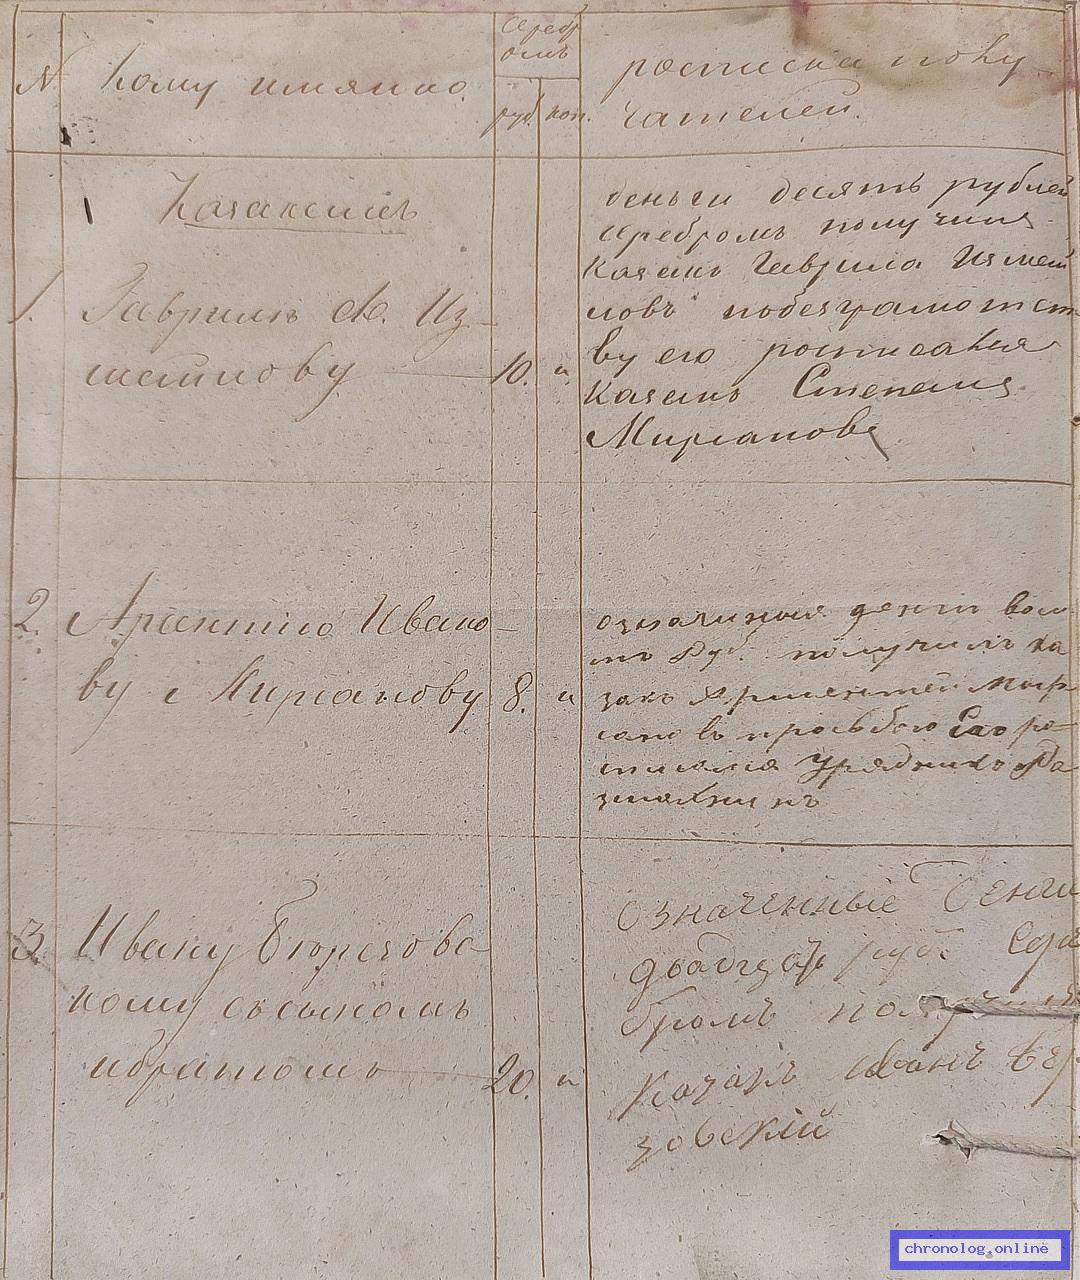 N
Кому имянно.
Серебр
омъ
руб. коп.
росписка полу
чателей.
Казакамъ
1.
Гаврилѣ Ив. Из-
маилову 10. "
деньги десять рублей
серебромъ получилъ
Казакъ Гаврила Измаи
ловъ побезграмотст
ву его росписался
Казакъ Степанъ
Мирзановъ
2.
Арсентію Ивано-
ву Мирсанову 8. "
означиныя денги вом
ть руб. получилъ ка
закъ Арсентей Мир
сановъ просьбою Его ро-
списался Урядникъ
3.
Ивану Березовс
кому съ сыномъ
ибратомъ 20. "
Означенные Денги
двадцать руб. Сере
бромъ получилъ
Казакъ Иванъ Бере
зовскій
chronolog.online